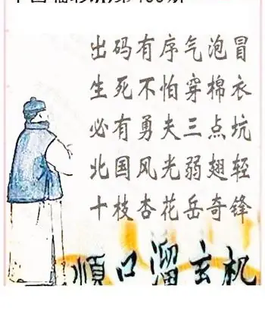 出码有序气泡冒
生死不怕穿棉衣
必有勇夫三点坑
北国风光弱翅轻
十枝杏花岳奇锋
順口溜玄机